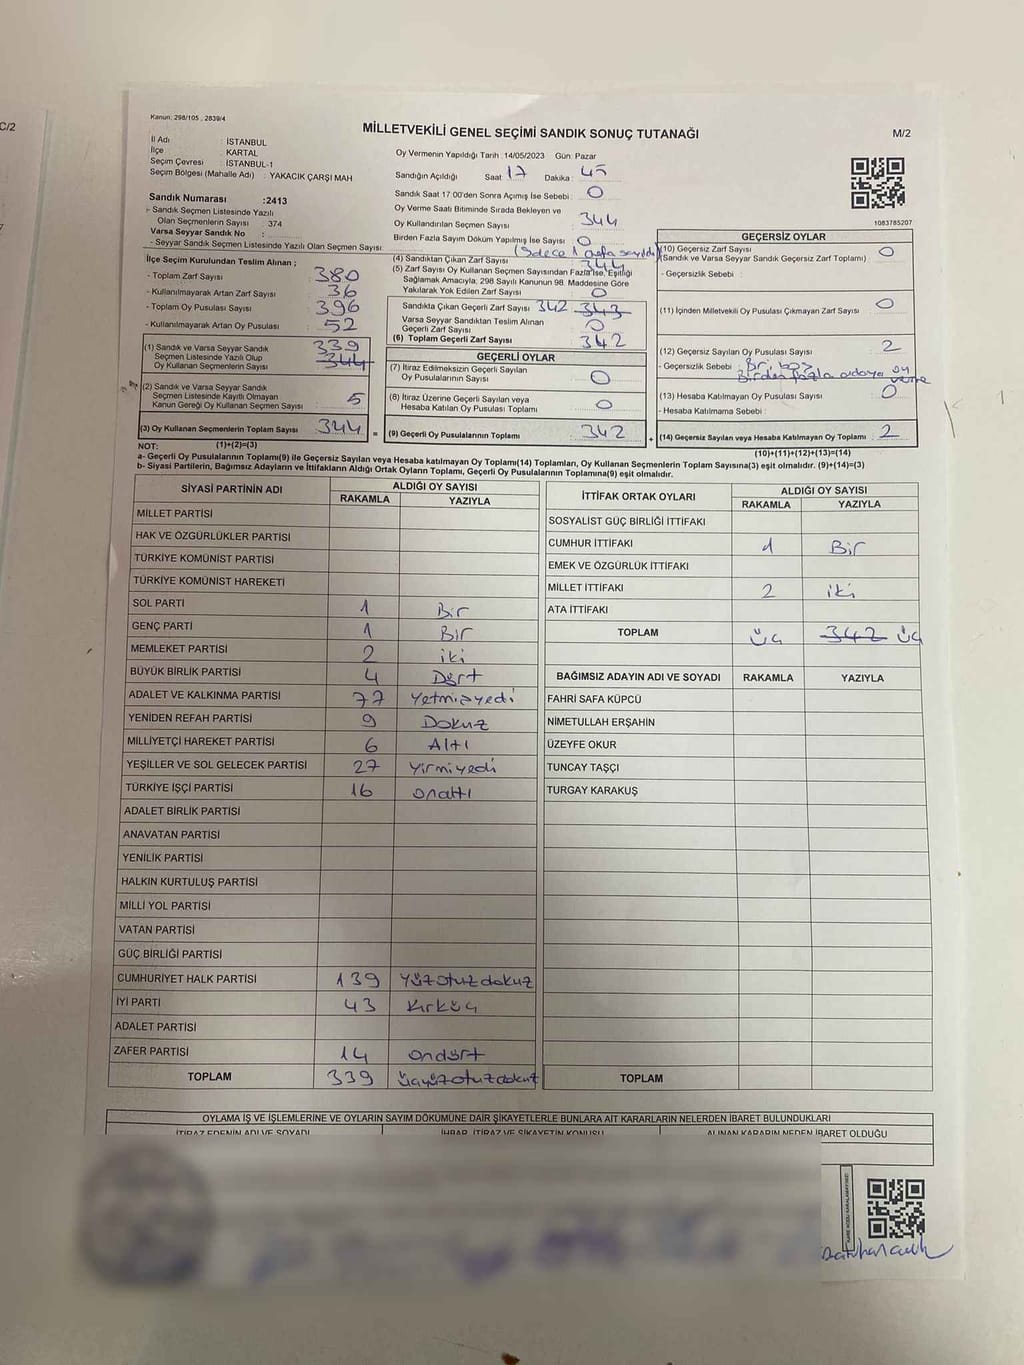 C/2
Kanun: 298/105 , 2839/4
MİLLETVEKİLİ GENEL SEÇİMİ SANDIK SONUÇ TUTANAĞI
M/2
İl Adı : İSTANBUL
İlçe : KARTAL
Seçim Çevresi : İSTANBUL-1
Seçim Bölgesi (Mahalle Adı) : YAKACIK ÇARŞI MAH
Sandık Numarası :2413
- Sandık Seçmen Listesinde Yazılı
Olan Seçmenlerin Sayısı : 374
Varsa Seyyar Sandık No :
- Seyyar Sandık Seçmen Listesinde Yazılı Olan Seçmen Sayısı:
Oy Vermenin Yapıldığı Tarih : 14/05/2023 Gün: Pazar
Sandığın Açıldığı Saat : 17 Dakika : 45
Sandık Saat 17:00'den Sonra Açımış İse Sebebi : 0
Oy Verme Saati Bitiminde Sırada Bekleyen ve
Oy Kullandırılan Seçmen Sayısı : 344
Birden Fazla Sayım Döküm Yapılmış İse Sayısı : 0
(Sadece 1 defa sayıldı)
1083785207
İlçe Seçim Kurulundan Teslim Alınan ;
- Toplam Zarf Sayısı : 380
- Kullanılmayarak Artan Zarf Sayısı : 36
- Toplam Oy Pusulası Sayısı : 396
- Kullanılmayarak Artan Oy Pusulası : 52
(1) Sandık ve Varsa Seyyar Sandık 339
Seçmen Listesinde Yazılı Olup
Oy Kullanan Seçmenlerin Sayısı : 344
(2) Sandık ve Varsa Seyyar Sandık
Seçmen Listesinde Kayıtlı Olmayan
Kanun Gereği Oy Kullanan Seçmen Sayısı : 5
(3) Oy Kullanan Seçmenlerin Toplam Sayısı : 344 =
(4) Sandıktan Çıkan Zarf Sayısı : 344
(5) Zarf Sayısı Oy Kullanan Seçmen Sayısından Fazla İse, Eşitliği
Sağlamak Amacıyla; 298 Sayılı Kanunun 98. Maddesine Göre
Yakılarak Yok Edilen Zarf Sayısı : 0
Sandıkta Çıkan Geçerli Zarf Sayısı : 342 343
Varsa Seyyar Sandıktan Teslim Alınan
Geçerli Zarf Sayısı : 0
(6) Toplam Geçerli Zarf Sayısı : 342
GEÇERLİ OYLAR
(7) İtiraz Edilmeksizin Geçerli Sayılan
Oy Pusulalarının Sayısı : 0
(8) İtiraz Üzerine Geçerli Sayılan veya
Hesaba Katılan Oy Pusulası Toplamı : 0
(9) Geçerli Oy Pusulalarının Toplamı : 342 +
GEÇERSİZ OYLAR
(10) Geçersiz Zarf Sayısı
(Sandık ve Varsa Seyyar Sandık Geçersiz Zarf Toplamı) : 0
- Geçersizlik Sebebi :
(11) İçinden Milletvekili Oy Pusulası Çıkmayan Zarf Sayısı : 0
(12) Geçersiz Sayılan Oy Pusulası Sayısı : 2
- Geçersizlik Sebebi : Biri boş
Birden fazla adaya oy verme
(13) Hesaba Katılmayan Oy Pusulası Sayısı : 0
- Hesaba Katılmama Sebebi :
(14) Geçersiz Sayılan veya Hesaba Katılmayan Oy Toplamı : 2
NOT: (1)+(2)=(3)
(10)+(11)+(12)+(13)=(14)
a- Geçerli Oy Pusulalarının Toplamı(9) ile Geçersiz Sayılan veya Hesaba katılmayan Oy Toplamı(14) Toplamları, Oy Kullanan Seçmenlerin Toplam Sayısına(3) eşit olmalıdır. (9)+(14)=(3)
b- Siyasi Partilerin, Bağımsız Adayların ve İttifakların Aldığı Ortak Oyların Toplamı, Geçerli Oy Pusulalarının Toplamına(9) eşit olmalıdır.
SİYASİ PARTİNİN ADI ALDIĞI OY SAYISI
RAKAMLA YAZIYLA
MİLLET PARTİSİ
HAK VE ÖZGÜRLÜKLER PARTİSİ
TÜRKİYE KOMÜNİST PARTİSİ
TÜRKİYE KOMÜNİST HAREKETİ
SOL PARTİ 1 Bir
GENÇ PARTİ 1 Bir
MEMLEKET PARTİSİ 2 iki
BÜYÜK BİRLİK PARTİSİ 4 Dört
ADALET VE KALKINMA PARTİSİ 77 Yetmişyedi
YENİDEN REFAH PARTİSİ 9 Dokuz
MİLLİYETÇİ HAREKET PARTİSİ 6 Altı
YEŞİLLER VE SOL GELECEK PARTİSİ 27 Yirmiyedi
TÜRKİYE İŞÇİ PARTİSİ 16 onaltı
ADALET BİRLİK PARTİSİ
ANAVATAN PARTİSİ
YENİLİK PARTİSİ
HALKIN KURTULUŞ PARTİSİ
MİLLİ YOL PARTİSİ
VATAN PARTİSİ
GÜÇ BİRLİĞİ PARTİSİ
CUMHURİYET HALK PARTİSİ 139 Yüzotuzdokuz
İYİ PARTİ 43 Kırküç
ADALET PARTİSİ
ZAFER PARTİSİ 14 ondört
TOPLAM 339 üçyüzotuzdokuz
İTTİFAK ORTAK OYLARI ALDIĞI OY SAYISI
RAKAMLA YAZIYLA
SOSYALİST GÜÇ BİRLİĞİ İTTİFAKI
CUMHUR İTTİFAKI 1 Bir
EMEK VE ÖZGÜRLÜK İTTİFAKI
MİLLET İTTİFAKI 2 iki
ATA İTTİFAKI
TOPLAM üç 342 üç
BAĞIMSIZ ADAYIN ADI VE SOYADI RAKAMLA YAZIYLA
FAHRİ SAFA KÜPCÜ
NİMETULLAH ERŞAHİN
ÜZEYFE OKUR
TUNCAY TAŞÇI
TURGAY KARAKUŞ
TOPLAM
OYLAMA İŞ VE İŞLEMLERİNE VE OYLARIN SAYIM DÖKÜMÜNE DAİR ŞİKAYETLERLE BUNLARA AİT KARARLARIN NELERDEN İBARET BULUNDUKLARI
İTİRAZ EDENİN ADI VE SOYADI İHBAR, İTİRAZ VE ŞİKAYETİN KONUSU ALINAN KARARIN NEDEN İBARET OLDUĞU